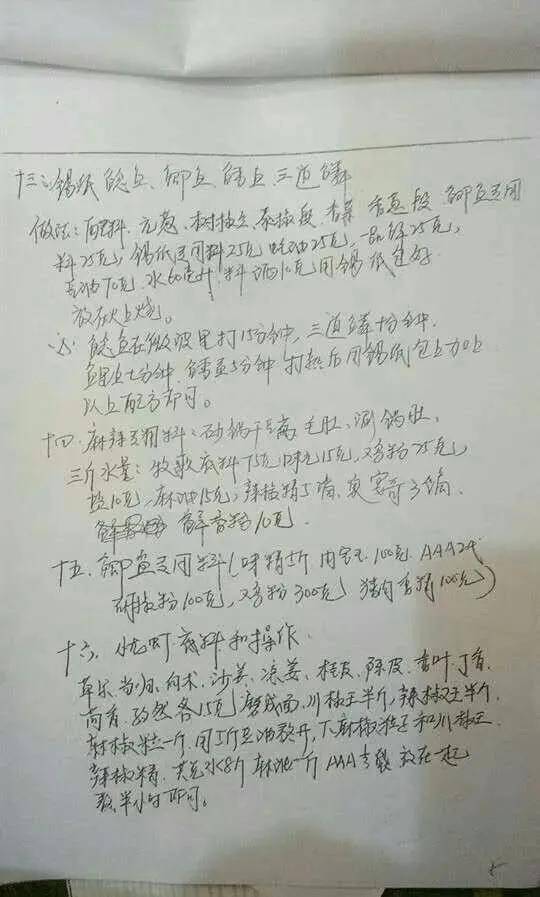 十三、锡纸鲶鱼、鲫鱼、鳕鱼、三道鳞
做法: 面料、元葱、树椒
料25克, 锡纸专用料25克, 蚝油25克, 一品鲜25克,
豆油70克, 水60毫升, 料酒10克用锡纸包好
放在火上烧。
注: 鲶鱼在微波里打15分钟, 三道鳞十分钟,
分钟, 鳕鱼5分钟打热后用锡纸包上加上
以上配方即可。
十四、麻辣专用料: 砂锅干豆腐, 毛肚, 涮锅肚,
三斤水量: 牧歌底料75克, 味之15克, 鸡粉25克,
盐10克, 麻油15克, 辣椒精5滴, 3滴,
鲜香粉10克.
十五、鲫鱼专用料(味精5斤 肉宝王100克 AAA2代
胡椒粉100克, 鸡粉300克 猪肉香精100克)
十六、底料和操作.
草果、当归、白术、沙姜、凉姜、桂皮、陈皮、香叶、丁香、
茴香, 孜然各15克磨成面, 川椒王半斤, 辣椒王半斤
麻椒粒一个, 用5斤豆油敖开, 下麻椒粒和川椒王
辣椒精, 水8斤 麻油一斤 AAA 放在一起
敖半小时即可。